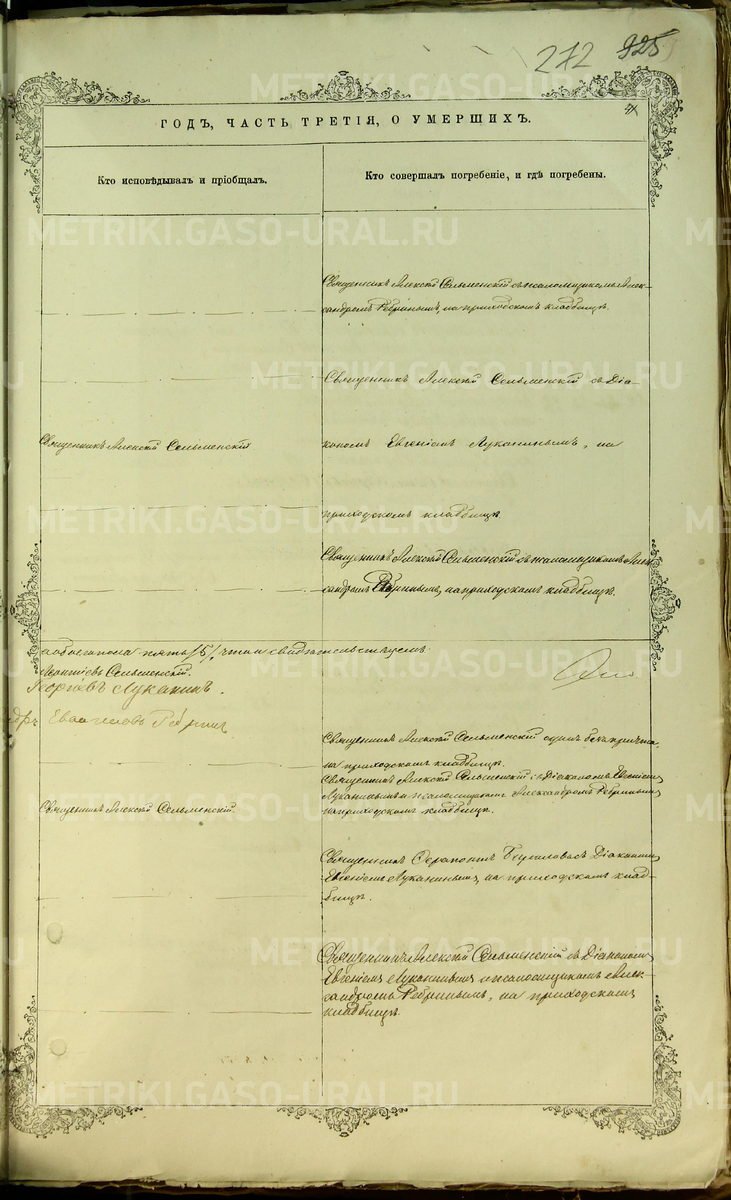 272 925
ГОДЪ, ЧАСТЬ ТРЕТІЯ, О УМЕРШИХЪ.
Кто исповѣдывалъ и пріобщалъ.
Кто совершалъ погребеніе, и гдѣ погребены.
Священникъ Алексій Сельменскій съ псаломщикомъ Алек-
сандромъ Ребринымъ, на приходскомъ кладбищѣ.
Священникъ Алексій Сельменскій съ Діа-
Священникъ Алексій Сельменскій
кономъ Евгеніемъ Луканинымъ, на
приходскомъ кладбищѣ.
Священникъ Алексій Сельменскій съ псаломщикомъ Алек-
сандромъ Ребринымъ, на приходскомъ кладбищѣ.
обоего пола пять /5/, въ томъ свидѣтельствуемъ:
Сельменскій.
Георгіевъ Луканинъ.
Ребринъ
Священникъ Алексій Сельменскій одинъ безъ причта,
на приходскомъ кладбищѣ.
Священникъ Алексій Сельменскій съ Діакономъ Евгеніемъ
Священникъ Алексій Сельменскій.
Луканинымъ и псаломщикомъ Александромъ Ребринымъ
на приходскомъ кладбищѣ.
Священникъ съ Діакономъ
Евгеніемъ Луканинымъ, на приходскомъ клад-
бищѣ.
Священникъ Алексій Сельменскій съ Діакономъ
Евгеніемъ Луканинымъ и псаломщикомъ Алек-
сандромъ Ребринымъ, на приходскомъ
кладбищѣ.
METRIKI.GASO-URAL.RU